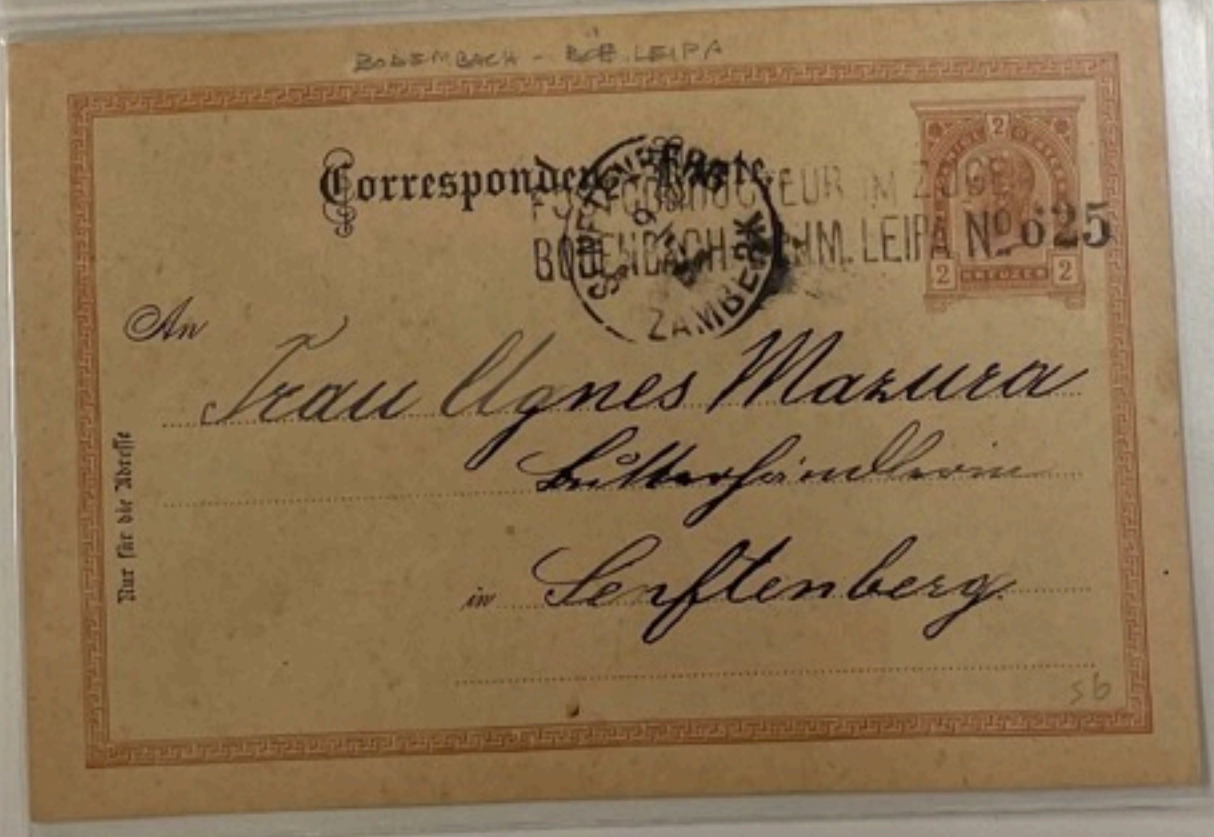 BODENBACH - BÖ. LEIPA
Correspondenz-Karte.
POSTCONDUCTEUR IM ZUGE
BODENBACH-BÖHM. LEIPA No 625
SENFTENBERG
9
ZAMBERK
2
2 KREUZER 2
An Frau Agnes Mazura
Butterhändlerin
in Senftenberg.
Nur für die Adresse
56